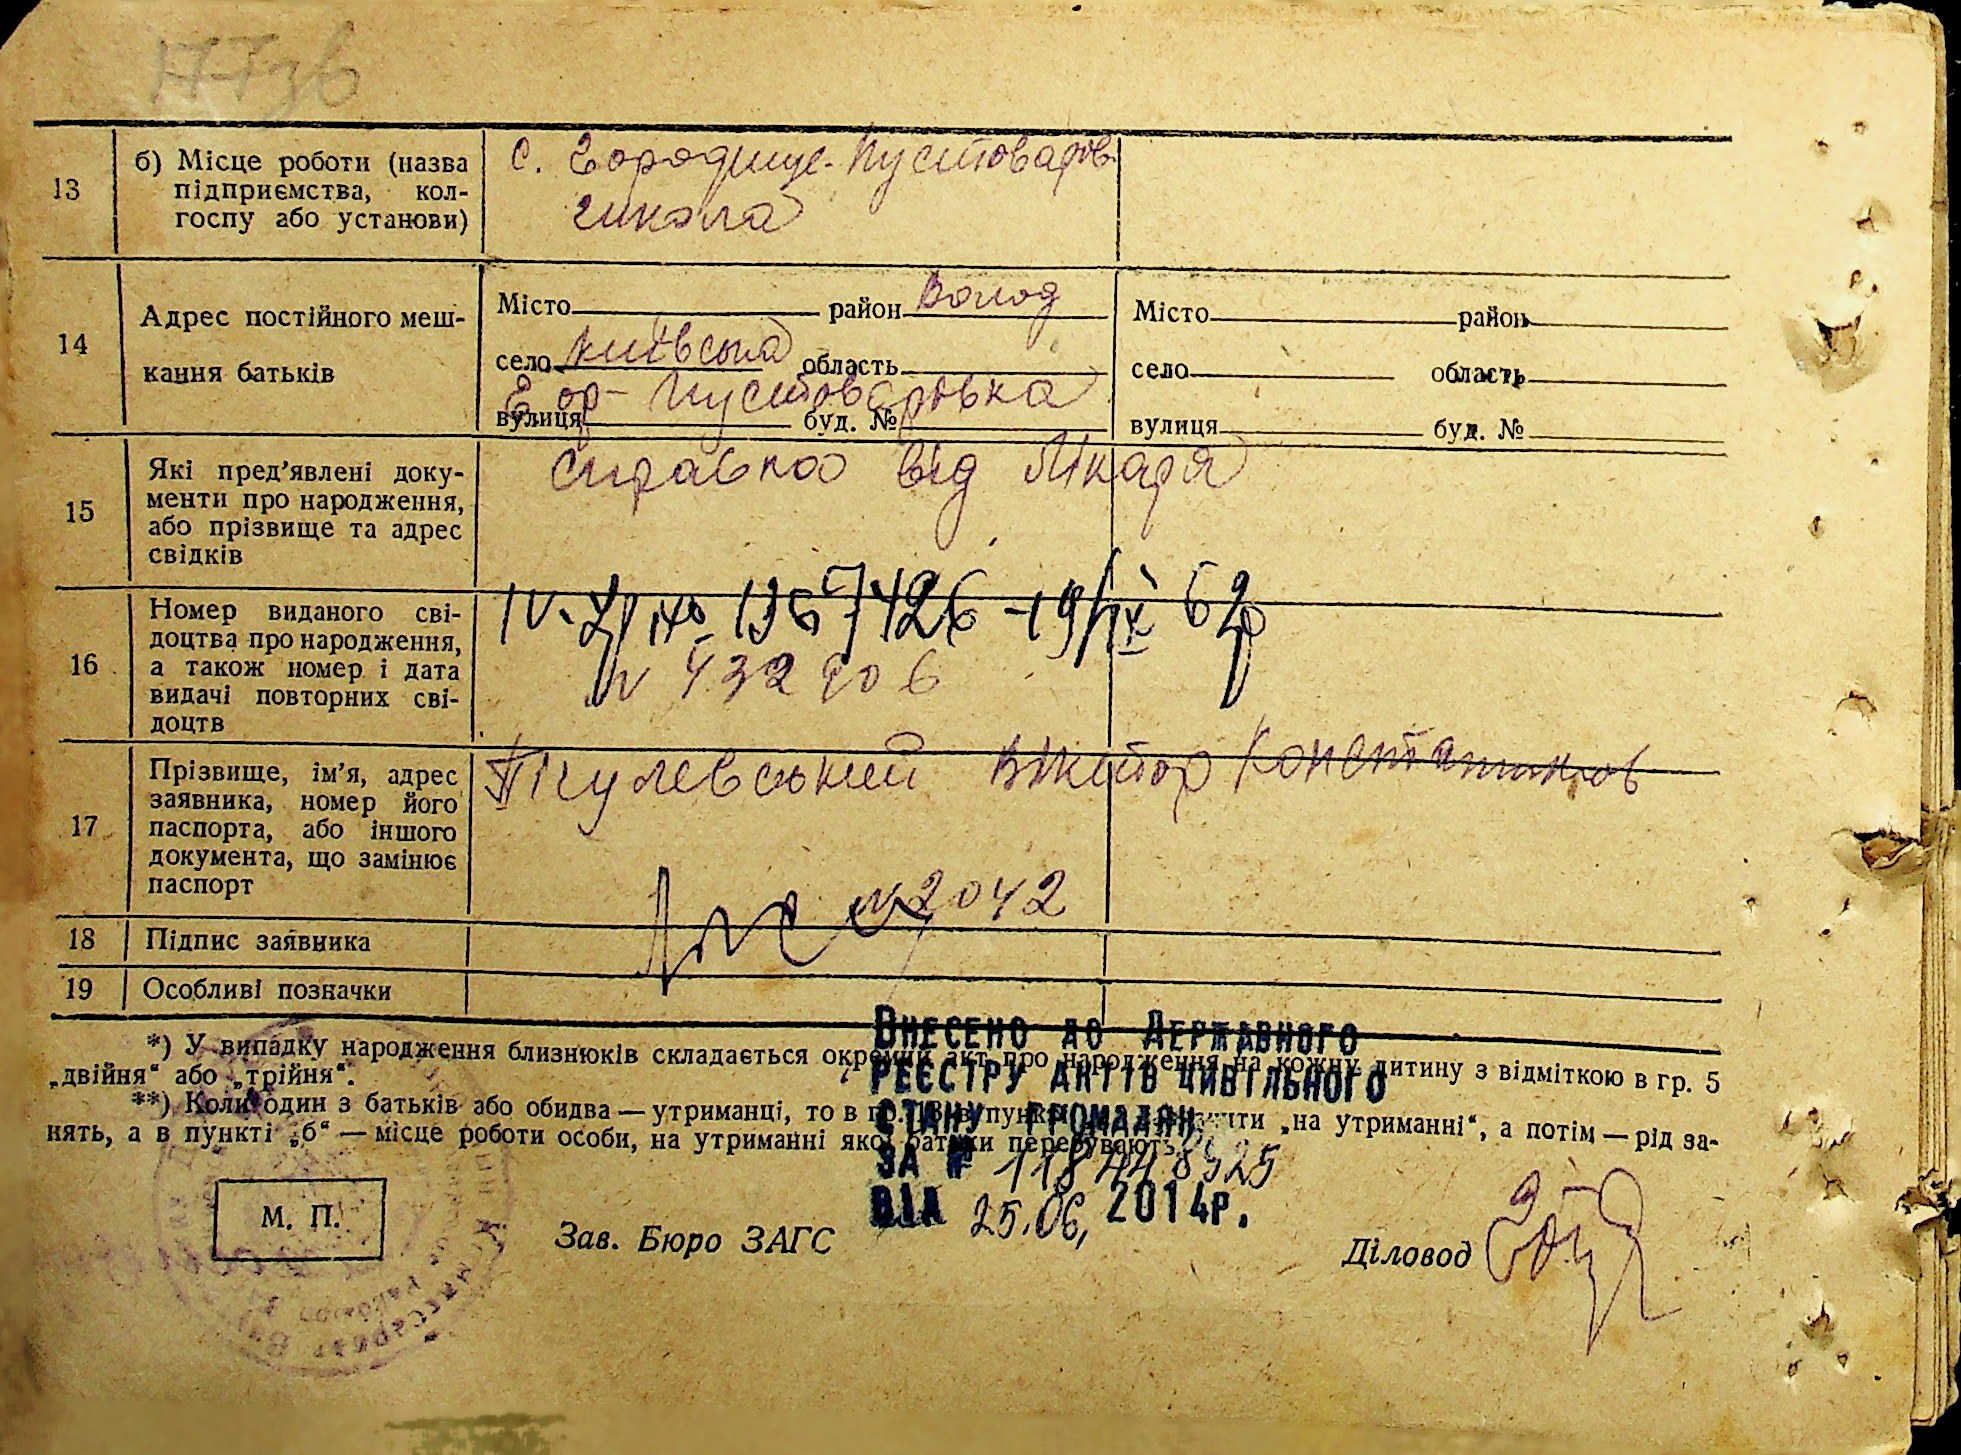 177зв
13
б) Місце роботи (назва
підприємства, кол-
госпу або установи)
с. Городище-Пустоваров.
школа
14
Адрес постійного меш-
кання батьків
Місто район Волод
село Київська область
Гор-Пустоварівка
вулиця буд. №
Місто район
село область
вулиця буд. №
15
Які пред’явлені доку-
менти про народження,
або прізвище та адрес
свідків
справка від лікаря
16
Номер виданого сві-
доцтва про народження,
а також номер і дата
видачі повторних сві-
доцтв
IV- № 1367426 -19/IX 62р
N 432906
17
Прізвище, ім’я, адрес
заявника, номер його
паспорта, або іншого
документа, що замінює
паспорт
Пігулевський Віктор Константинов
N 2042
18
Підпис заявника
19
Особливі позначки
*) У випадку народження близнюків складається окремий акт про народження на кожну дитину з відміткою в гр. 5
„двійня“ або „трійня“.
**) Коли один з батьків або обидва — утриманці, то в гр. 13 в пункті „на утриманні“, а потім — рід за-
нять, а в пункті „б“ — місце роботи особи, на утриманні якої батьки перебувають.
Внесено до Державного
реєстру актів цивільного
стану громадян
за № 11844 8925
від 25.06, 2014р.
М. П.
Зав. Бюро ЗАГС
Діловод